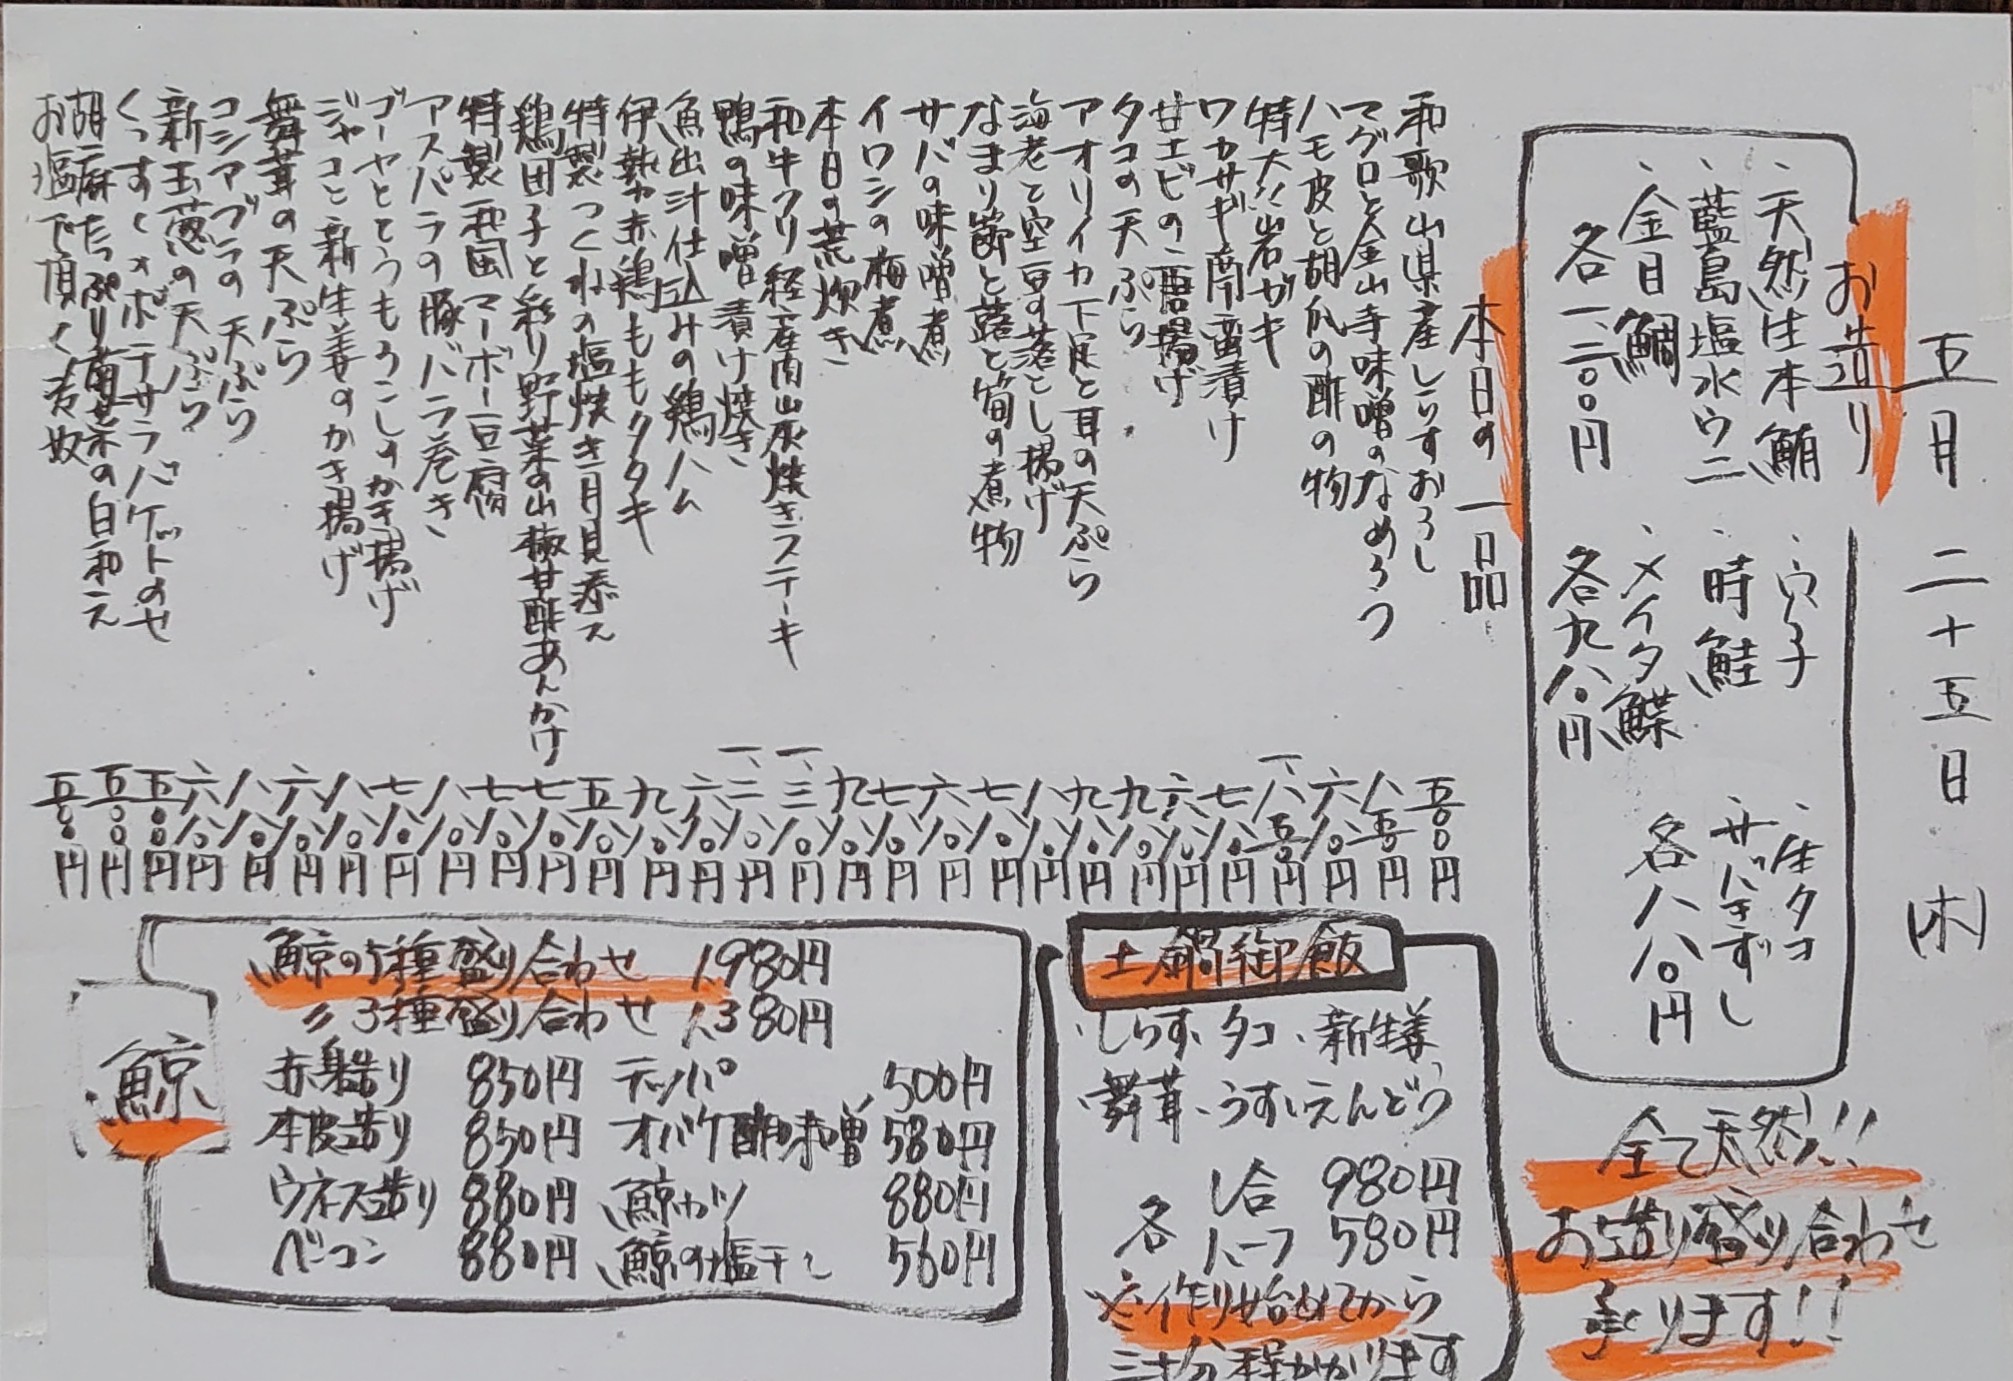 五月二十五日(木)
お造り
・天然生本鮪
・藍島塩水ウニ
・金目鯛
各一、二〇〇円
・穴子
・時鮭
・メイタ鰈
各九八〇円
・生タコ
・サバきずし
各八八〇円
全て天然!!
お造り盛り合わせ
承ります!!
本日の一品
和歌山県産しらすおろし 五〇〇円
マグロと金山寺味噌のなめろう 八五〇円
ハモ皮と胡瓜の酢の物 六八〇円
特大!!岩ガキ 一、八五〇円
ワカサギ南蛮漬け 七八〇円
甘エビの唐揚げ 六八〇円
タコの天ぷら 九八〇円
アオリイカ下足と耳の天ぷら 九八〇円
海老と空豆の落とし揚げ 八八〇円
なまり節と蕗と筍の煮物 七八〇円
サバの味噌煮 六八〇円
イワシの梅煮 七八〇円
本日の荒炊き 九八〇円
和牛クリ経産肉炭焼きステーキ 一、三八〇円
鴨の味噌漬け焼き 一、二八〇円
魚出汁仕込みの鶏ハム 六八〇円
伊勢赤鶏ももタタキ 九八〇円
特製つくねの塩焼き月見添え 五八〇円
鶏団子と彩り野菜の山椒甘酢あんかけ 七八〇円
特製和風マーボー豆腐 七八〇円
アスパラの豚バラ巻き 八八〇円
ゴーヤととうもろこしのかき揚げ 七八〇円
ジャコと新生姜のかき揚げ 八八〇円
舞茸の天ぷら 六八〇円
コシアブラの天ぷら 八八〇円
新玉葱の天ぷら 六八〇円
ポテサラバケットのせ 五〇〇円
胡麻たっぷり青菜の白和え 五〇〇円
お塩で頂く冷奴 五〇〇円
土鍋御飯
・しらす・タコ・新生姜
・舞茸・うすいえんどう
各 1合 980円
ハーフ 580円
※作り始めてから
三十分程かかります
鯨
鯨の5種盛り合わせ 1,980円
〃3種盛り合わせ 1,380円
赤身造り 850円 テッパ 500円
本皮造り 850円 オバケ酢味噌 580円
ウネス造り 880円 鯨カツ 880円
ベーコン 880円 鯨の塩干し 560円